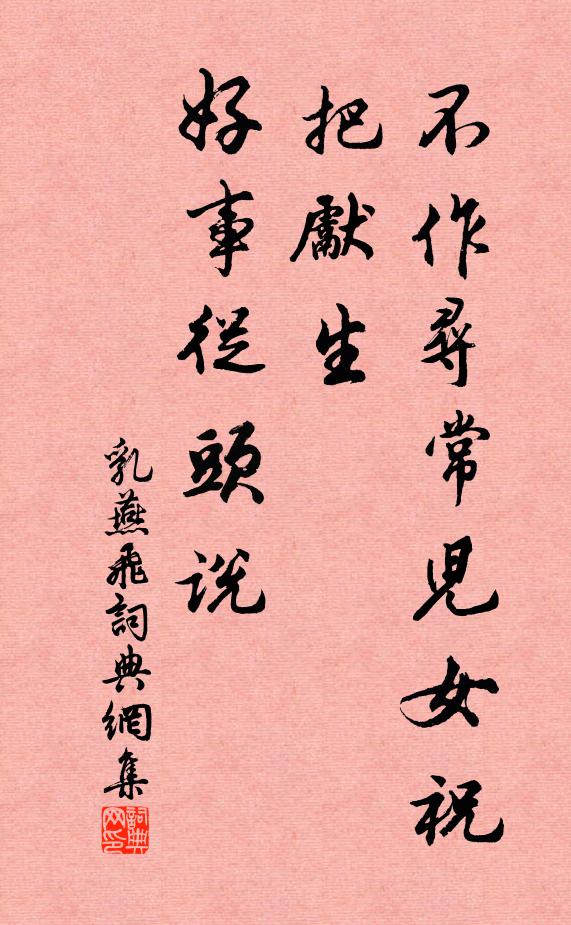 不作尋常兒女祝
把獻生
好事從頭說
乳燕飛詞典網集
詞典网印